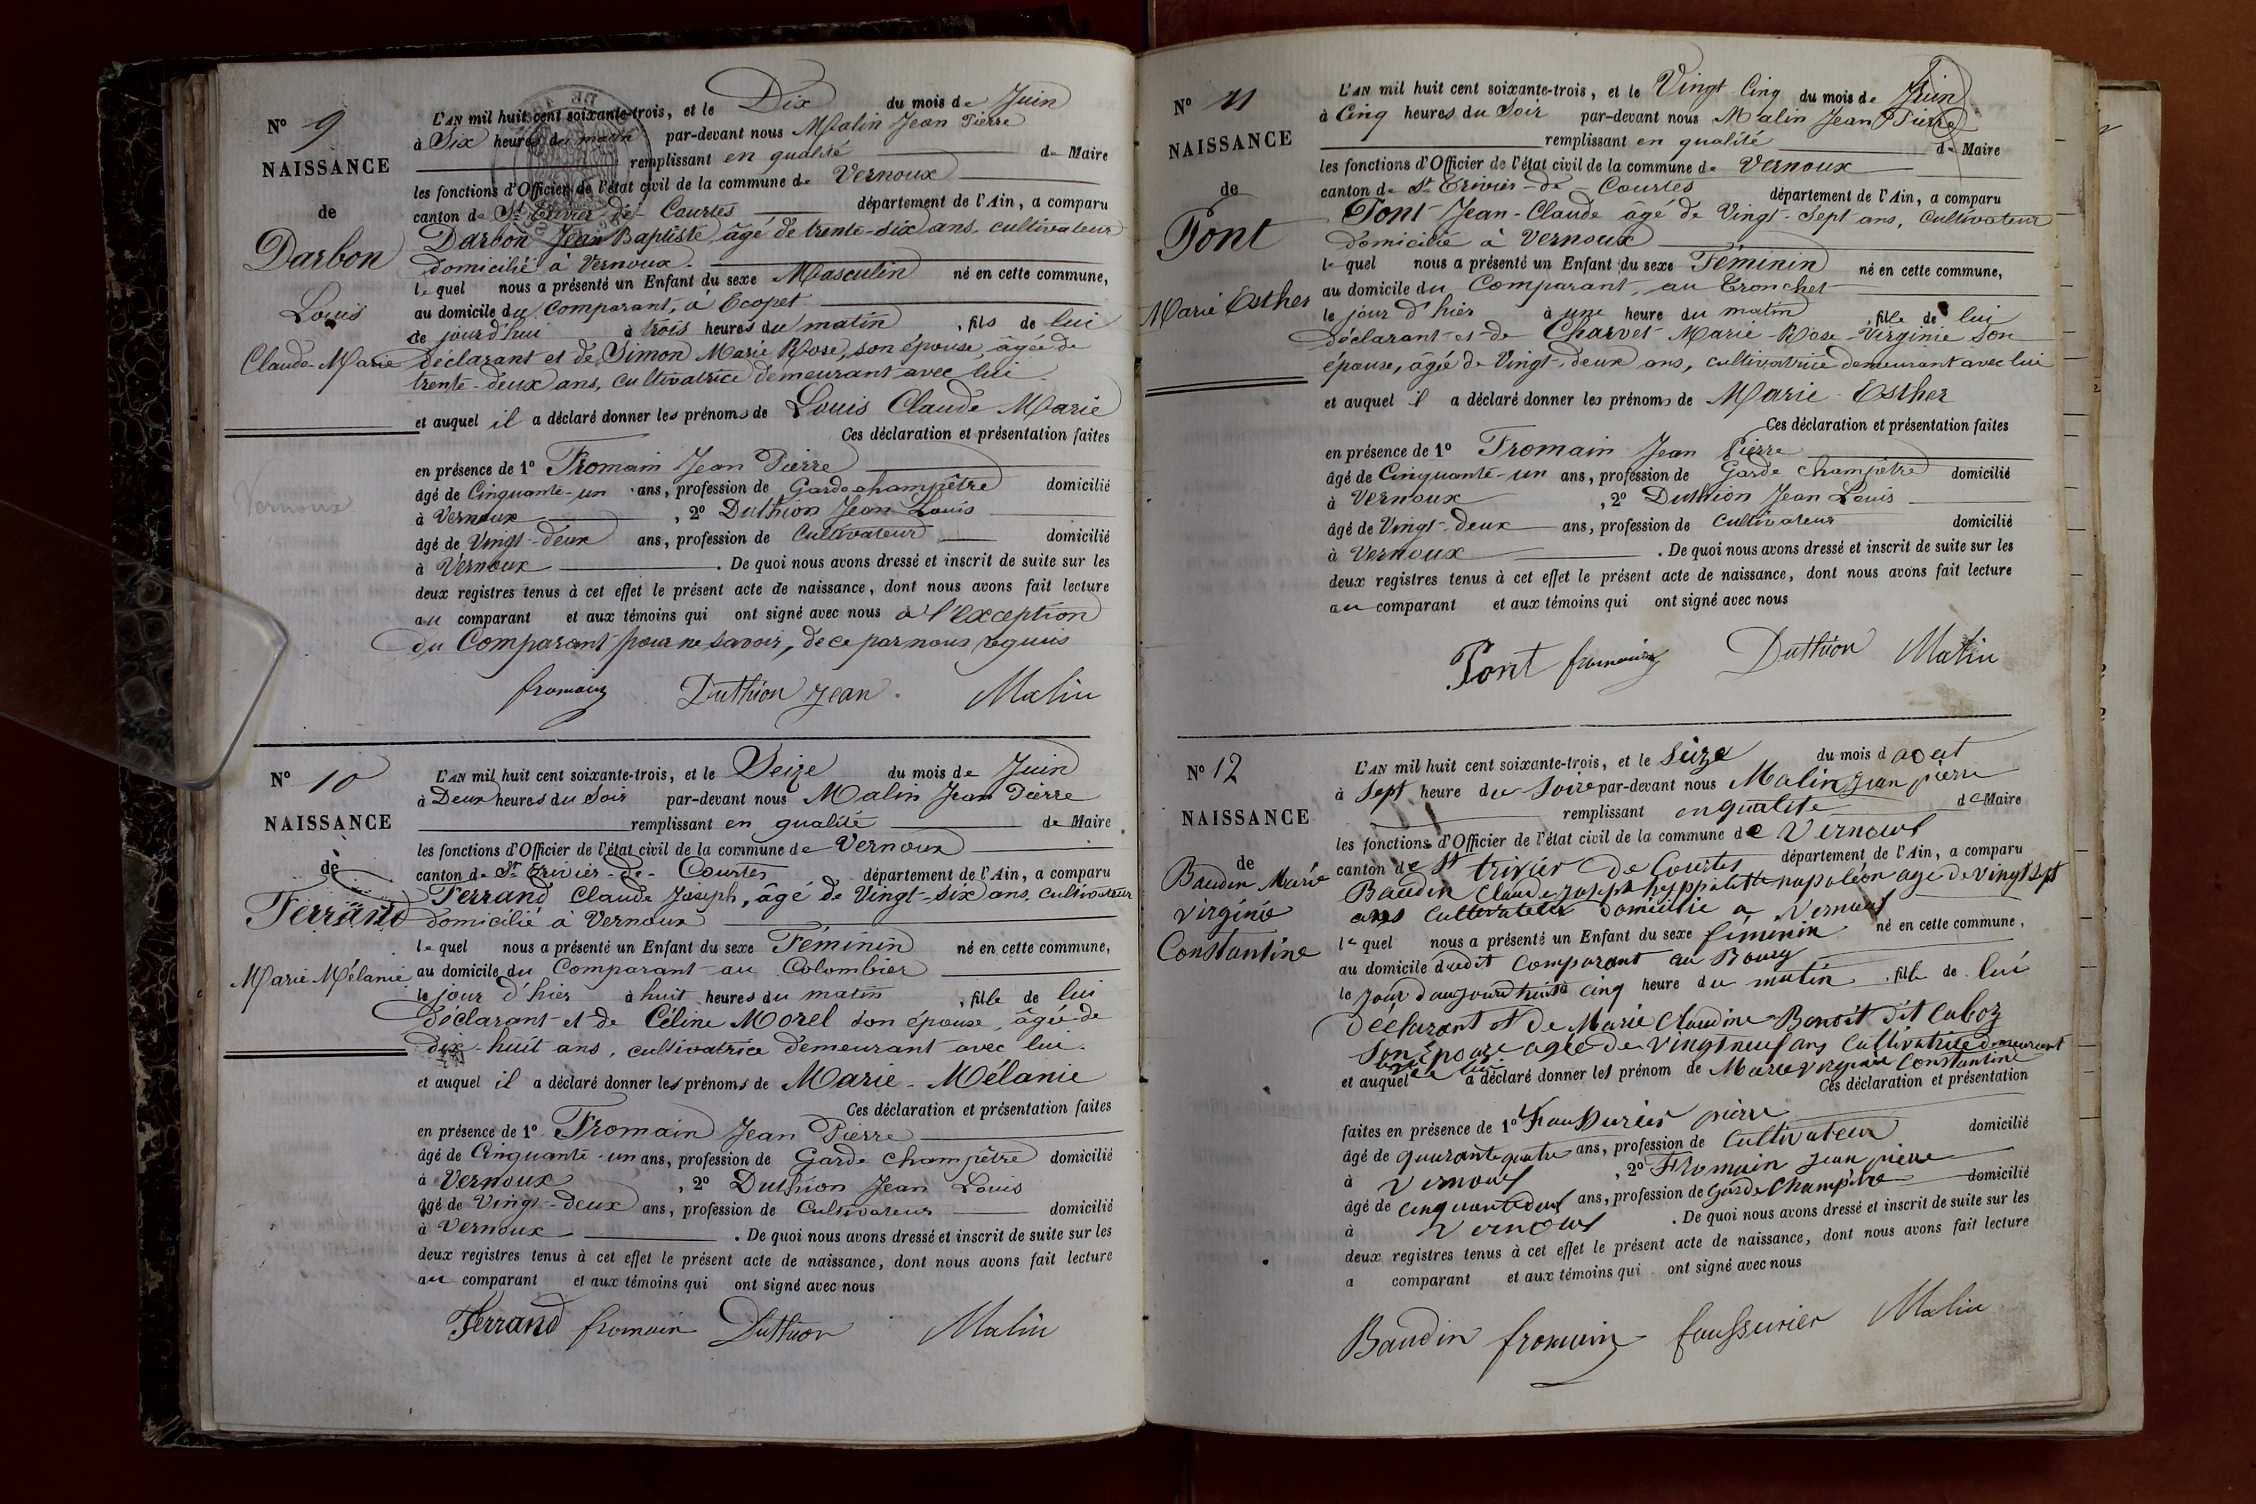 N° 9
NAISSANCE
de
Darbon
Louis
Claude-Marie
L'AN mil huit cent soixante-trois, et le Dix du mois de Juin
à Six heures du matin par-devant nous Malin Jean Pierre
remplissant en qualité de Maire
les fonctions d'Officier de l'état civil de la commune de Vernoux
canton de St Trivier-de-Courtes département de l'Ain, a comparu
Darbon Jean Baptiste, âgé de trente-six ans, cultivateur
domicilié à Vernoux.
le quel nous a présenté un Enfant du sexe Masculin né en cette commune,
au domicile du comparant, à Ecopet
de jourd'hui à trois heures du matin, fils de lui
déclarant et de Simon Marie Rose, son épouse, âgée de
trente-deux ans, cultivatrice demeurant avec lui.
et auquel il a déclaré donner les prénoms de Louis Claude Marie
Ces déclaration et présentation faites
en présence de 1° Fromain Jean Pierre
âgé de Cinquante-un ans, profession de Garde champêtre domicilié
à Vernoux, 2° Duthion Jean Louis
âgé de Vingt-deux ans, profession de Cultivateur domicilié
à Vernoux. De quoi nous avons dressé et inscrit de suite sur les
deux registres tenus à cet effet le présent acte de naissance, dont nous avons fait lecture
au comparant et aux témoins qui ont signé avec nous à l'exception
du Comparant pour ne savoir, de ce par nous requis
fromain Duthion Jean. Malin
Vernoux
N° 10
NAISSANCE
de
Ferrand
Marie Mélanie
L'AN mil huit cent soixante-trois, et le Seize du mois de Juin
à Deux heures du Soir par-devant nous Malin Jean Pierre
remplissant en qualité de Maire
les fonctions d'Officier de l'état civil de la commune de Vernoux
canton de St Trivier-de-Courtes département de l'Ain, a comparu
Ferrand Claude Joseph, âgé de Vingt-six ans, cultivateur
domicilié à Vernoux
le quel nous a présenté un Enfant du sexe Féminin né en cette commune,
au domicile du Comparant au Colombier
le jour d'hier à huit heures du matin, fille de lui
déclarant et de Céline Morel son épouse, âgée de
dix-huit ans, cultivatrice demeurant avec lui.
et auquel il a déclaré donner les prénoms de Marie-Mélanie
Ces déclaration et présentation faites
en présence de 1° Fromain Jean Pierre
âgé de Cinquante-un ans, profession de Garde champêtre domicilié
à Vernoux, 2° Duthion Jean Louis
âgé de Vingt-deux ans, profession de Cultivateur domicilié
à Vernoux. De quoi nous avons dressé et inscrit de suite sur les
deux registres tenus à cet effet le présent acte de naissance, dont nous avons fait lecture
au comparant et aux témoins qui ont signé avec nous
Ferrand fromain Duthion Malin
N° 11
NAISSANCE
de
Pont
Marie Esther
L'AN mil huit cent soixante-trois, et le Vingt Cinq du mois de Juin
à Cinq heures du Soir par-devant nous Malin Jean Pierre
remplissant en qualité de Maire
les fonctions d'Officier de l'état civil de la commune de Vernoux
canton de St Trivier-de-Courtes département de l'Ain, a comparu
Pont Jean-Claude âgé de Vingt-Sept ans, cultivateur
domicilié à Vernoux
le quel nous a présenté un Enfant du sexe Féminin né en cette commune,
au domicile du Comparant, au Tronchet
le jour d'hier à une heure du matin, fille de lui
déclarant et de Charvet Marie Rose Virginie son
épouse, âgée de Vingt-deux ans, cultivatrice demeurant avec lui
et auquel il a déclaré donner les prénoms de Marie-Esther
Ces déclaration et présentation faites
en présence de 1° Fromain Jean Pierre
âgé de Cinquante-un ans, profession de Garde champêtre domicilié
à Vernoux, 2° Duthion Jean Louis
âgé de Vingt-deux ans, profession de Cultivateur domicilié
à Vernoux. De quoi nous avons dressé et inscrit de suite sur les
deux registres tenus à cet effet le présent acte de naissance, dont nous avons fait lecture
au comparant et aux témoins qui ont signé avec nous
Pont fromain Duthion Malin
N° 12
NAISSANCE
de
Baudin Marie
virginie
Constantine
L'AN mil huit cent soixante-trois, et le Seize du mois d aout
à Sept heure du Soire par-devant nous Malin jean pierre
remplissant en qualite de Maire
les fonctions d'Officier de l'état civil de la commune de Vernoux
canton de St trivier De Courtes département de l'Ain, a comparu
Baudin Claude joseph hyppolitte napoléon age de vingt sept
ans Cultivateur domicilie a Vernoux
le quel nous a présenté un Enfant du sexe féminin né en cette commune,
au domicile dudit Comparant au Bourg
le jour d'aujourdhui à cinq heure du matin, fille de lui
déclarant et de Marie Claudine Benoit dit Cuboz
Son Epouse agée de vingt neuf ans Cultivatrice demeurant
avec lui
et auquel a déclaré donner les prénom de Marie virginie Constantine
Ces déclaration et présentation
faites en présence de 1° Faussurier pierre
âgé de quarante quatre ans, profession de Cultivateur domicilié
à Vernoux, 2° Fromain jean pierre
âgé de cinquante deux ans, profession de Garde Champêtre domicilié
à Vernoux. De quoi nous avons dressé et inscrit de suite sur les
deux registres tenus à cet effet le présent acte de naissance, dont nous avons fait lecture
a comparant et aux témoins qui ont signé avec nous
Baudin fromain faussurier Malin